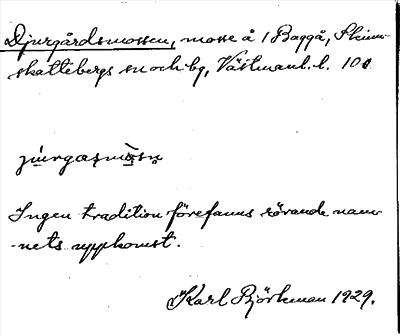 Djurgårdsmossen, mosse å 1 Baggå, Skinn-
skattebergs sn och bg, Västmanl. l. 10
Ingen tradition förefanns rörande nam-
nets uppkomst.
Karl Björkman 1929.